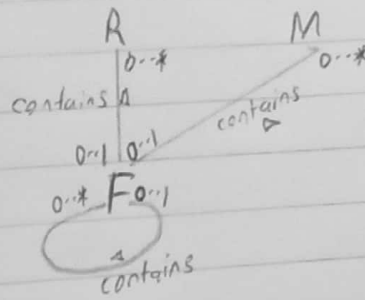 R M
0..* 0..*
contains
contains
0..1 0..1
0..* F 0..1
contains